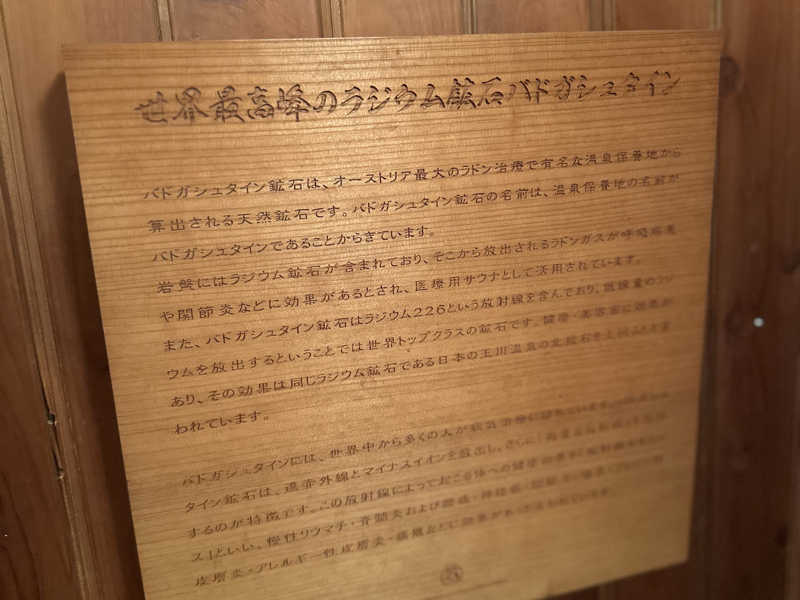 世界最高峰のラジウム鉱石バドガシュタイン
バドガシュタイン鉱石は、オーストリア最大のラドン治療で有名な温泉保養地から
算出される天然鉱石です。バドガシュタイン鉱石の名前は、温泉保養地の名前が
バドガシュタインであることからきています。
岩盤にはラジウム鉱石が含まれており、そこから放出されるラドンガスが呼吸疾患
や関節炎などに効果があるとされ、医療用サウナとして活用されています。
また、バドガシュタイン鉱石はラジウム226という放射線を含んでおり、低線量のラジ
ウムを放出するということでは世界トップクラスの鉱石です。健康・美容面に効果が
あり、その効果は同じラジウム鉱石である日本の玉川温泉の北投石を上回るとも言
われています。
バドガシュタインには、世界中から多くの人が病気治療に訪れています。
タイン鉱石は、遠赤外線とマイナスイオンを放出し、さらに
するのが特徴です。この放射線によっておこる体への健康効果を
ス」といい、慢性リウマチ・脊髄炎および
皮膚炎・アレルギー性皮膚炎・